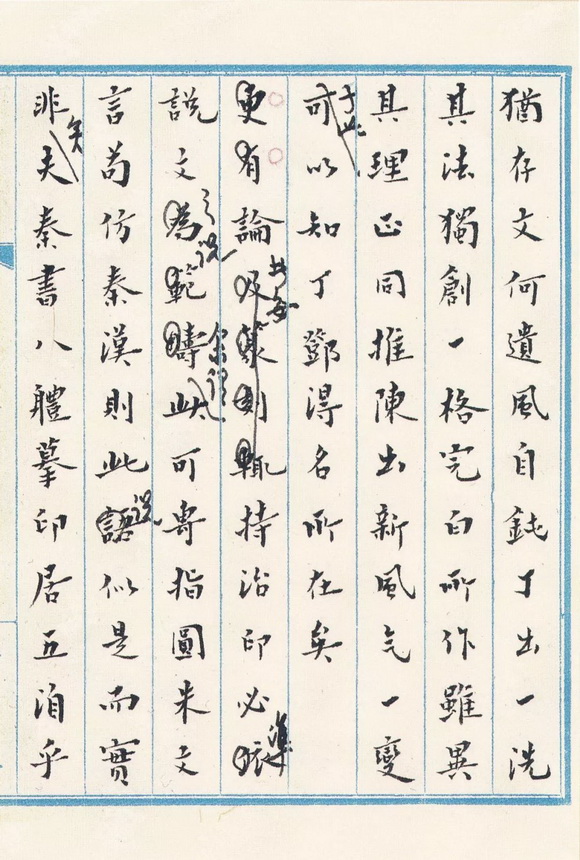 猶存文何遺風自鈍丁出一洗
其法獨創一格完白所作雖異
其理正同推陳出新風气一變
于此可以知丁鄧得名所在矣
更有論及篆刻輒持治印必準
說文為範疇之說余謂此可專指圓朱文
言苟仿秦漢則此語說似是而實
非矣夫秦書八體摹印居五洎乎